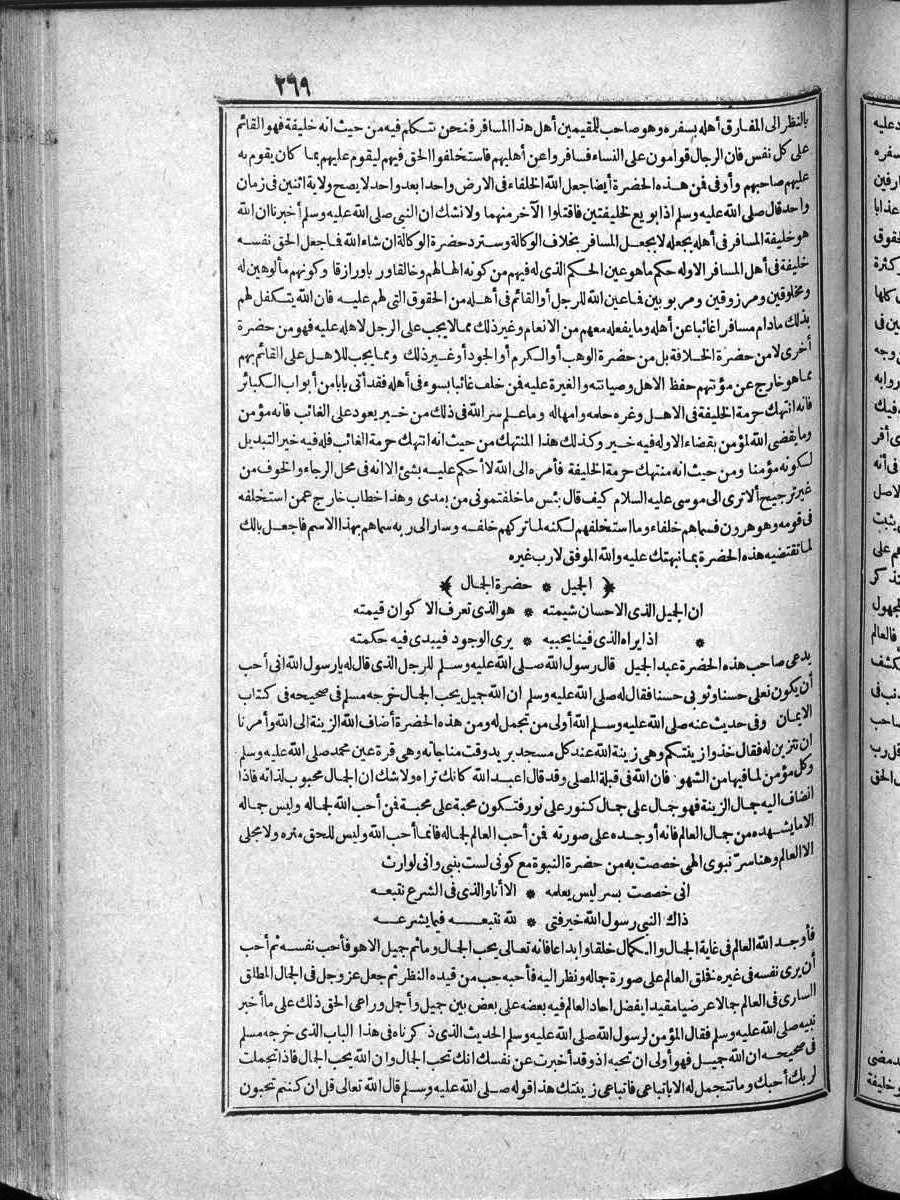 ٢٦٩
بالنظر الى المفارق أهله بسفره وهو صاحب للمقيمين أهل هذا المسافر فنحن نتكلم فيه من حيث انه خليفة فهو القائم
على كل نفس فان الرجال قوامون على النساء فسافروا عن أهليهم فاستخلفوا الحق فيهم ليقوم عليهم بما كان يقوم به
عليهم صاحبهم وأوفى فن هذه الحضرة أيضا جعل الله الخلفاء فى الارض واحدا بعد واحد لا يصح ولاية اثنين فى زمان
واحد قال صلى الله عليه وسلم اذا بويع لخليفتين فاقتلوا الآخر منهما ولا نشك ان النبى صلى الله عليه وسلم أخبرنا ان الله
هو خليفة المسافر فى أهله بجعله لا بجعل المسافر بخلاف الوكالة وسترد حضرة الوكالة ان شاء الله فاجعل الحق نفسه
خليفة فى أهل المسافر الا وله حكم ما هو عين الحكم الذى له فيهم من كونه الها لهم وخالقا ور با ورازقا وكونهم مألوهين له
ومخلوقين ومرزوقين ومربوبين فاعين الله للرجل أو القائم فى أهله من الحقوق التى لهم عليه فان الله يتكفل لهم
بذلك مادام مسافرا غائبا عن أهله وما يفعله معهم من الانعام وغير ذلك مما لا يجب على الرجل لاهله عليه فهو من حضرة
أخرى لا من حضرة الخلافة بل من حضرة الوهب أو الكرم أو الجود أو غير ذلك ومما يجب للاهل على القائم بهم
مما هو خارج عن مؤنتهم حفظ الاهل وصيانته والغيرة عليه فن خلف غائبا بسوء فى أهله فقد أتى بابا من أبواب الكبائر
فانه انتهك حرمة الخليفة فى الاهل وغره حلمه وامهاله وما علم سر الله فى ذلك من خير يعود على الغائب فانه مؤمن
وما يقضى الله لمؤمن بقضاء الا وله فيه خير وكذلك هذا المنتهك من حيث انه انتهك حرمة الغائب فله فيه خير التبديل
لكونه مؤمنا ومن حيث انه منتهك حرمة الخليفة فأمره الى الله لا أحكم عليه بشئ الا انه فى محل الرجاء والخوف من
غير ترجيح ألا ترى الى موسى عليه السلام كيف قال بئس ما خلفتمونى من بعدى وهذا خطاب خارج عمن استخلفه
فى قومه وهو هرون فسماهم خلفاء وما استخلفهم لكنه لما تركهم خلفه وسار الى ربه سماهم بهذا الاسم فاجعل بالك
لما تقتضيه هذه الحضرة بما نبهتك عليه والله الموفق لا رب غيره
﴿ الجميل * حضرة الجمال ﴾
ان الجميل الذى الاحسان شيمته * هو الذى تعرف الاكوان قيمته
* اذا يراه الذى فينا يحببه * يرى الوجود فيبدى فيه حكمته
يدعى صاحب هذه الحضرة عبد الجميل قال رسول الله صلى الله عليه وسلم للرجل الذى قال له يا رسول الله انى أحب
أن يكون نعلى حسنا وثوبى حسنا فقال له صلى الله عليه وسلم ان الله جميل يحب الجمال خرجه مسلم فى صحيحه فى كتاب
الايمان وفى حديث عنه صلى الله عليه وسلم الله أولى من تجمل له ومن هذه الحضرة أضاف الله الزينة الى الله وأمرنا
ان نتزين له فقال خذوا زينتكم وهى زينة الله عند كل مسجد يريد وقت مناجاته وهى قرة عين محمد صلى الله عليه وسلم
وكل مؤمن لما فيها من الشهود فان الله فى قبلة المصلى وقد قال اعبد الله كانك تراه ولا شك ان الجمال محبوب لذاته فاذا
انضاف اليه جمال الزينة فهو جمال على جمال كنور على نور فتكون محبة على محبة فن أحب الله لجماله وليس جماله
الا ما يشهده من جمال العالم فانه أوجده على صورته فن أحب العالم لجماله فانما أحب الله وليس للحق منزه ولا مجلى
الا العالم وهنا سر نبوى الهى خصصت به من حضرة النبوة مع كونى لست بنبى وانى لوارث
انى خصصت بسر ليس يعلمه * الا أنا والذى فى الشرع نتبعه
ذاك النبى رسول الله خير فتى * لله نتبعه فيما يشرعه
فأوجد الله العالم فى غاية الجمال والكمال خلقا وابداعا فانه تعالى يحب الجمال وما ثم جميل الا هو فأحب نفسه ثم أحب
أن يرى نفسه فى غيره فخلق العالم على صورة جماله ونظر اليه فأحبه حب من قيده النظر ثم جعل عز وجل فى الجمال المطلق
السارى فى العالم جمالا عرضيا مقيدا يفضل احاد العالم فيه بعضه على بعض بين جميل وأجمل وراعى الحق ذلك على ما أخبر
نبيه صلى الله عليه وسلم فقال المؤمن لرسول الله صلى الله عليه وسلم الحديث الذى ذكرناه فى هذا الباب الذى خرجه مسلم
فى صحيحه ان الله جميل فهو أولى ان تحبه اذ وقد أخبرت عن نفسك انك تحب الجمال وان الله يحب الجمال فاذا تجملت
لربك أحبك وما تتجمل له الا باتباعى فاتباعى زينتك هذا قوله صلى الله عليه وسلم قال الله تعالى قل ان كنتم تحبون